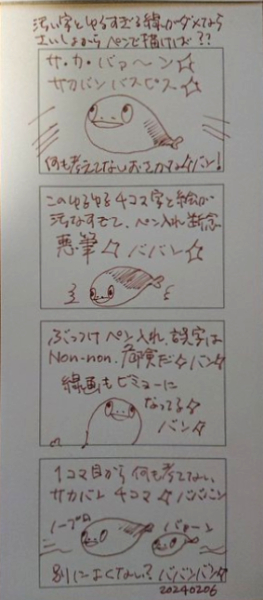 汚い字とゆるすぎる線がダメなら
さいしょからペンで描けば??
サ・カ・バァ〜ン☆
サカバンバスピス☆
何も考えてないおさかな☆バン!
このゆるゆる4コマ字と絵が
汚なすぎて、ペン入れ断念
悪筆☆ババン☆
ぶっつけペン入れ、誤字は
Non-non.危険だ☆バン☆
線画もビミョーに
なってる☆
バン☆
1コマ目から何も考えてない
サカバン4コマ☆ババン
ノープロ
バァーン
別によくない?ババンバン☆
20240206